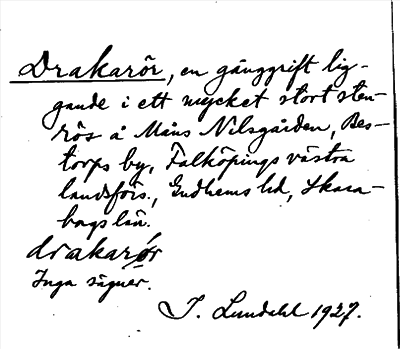 Drakarör, en gånggrift lig-
gande i ett mycket stort sten-
rös å Måns Nilsgården, Bes-
torps by, Falköpings västra
landsförs., Gudhems hd, Skara-
bags län.
drakarör
Inga sägner.
J. Lundahl 1927.